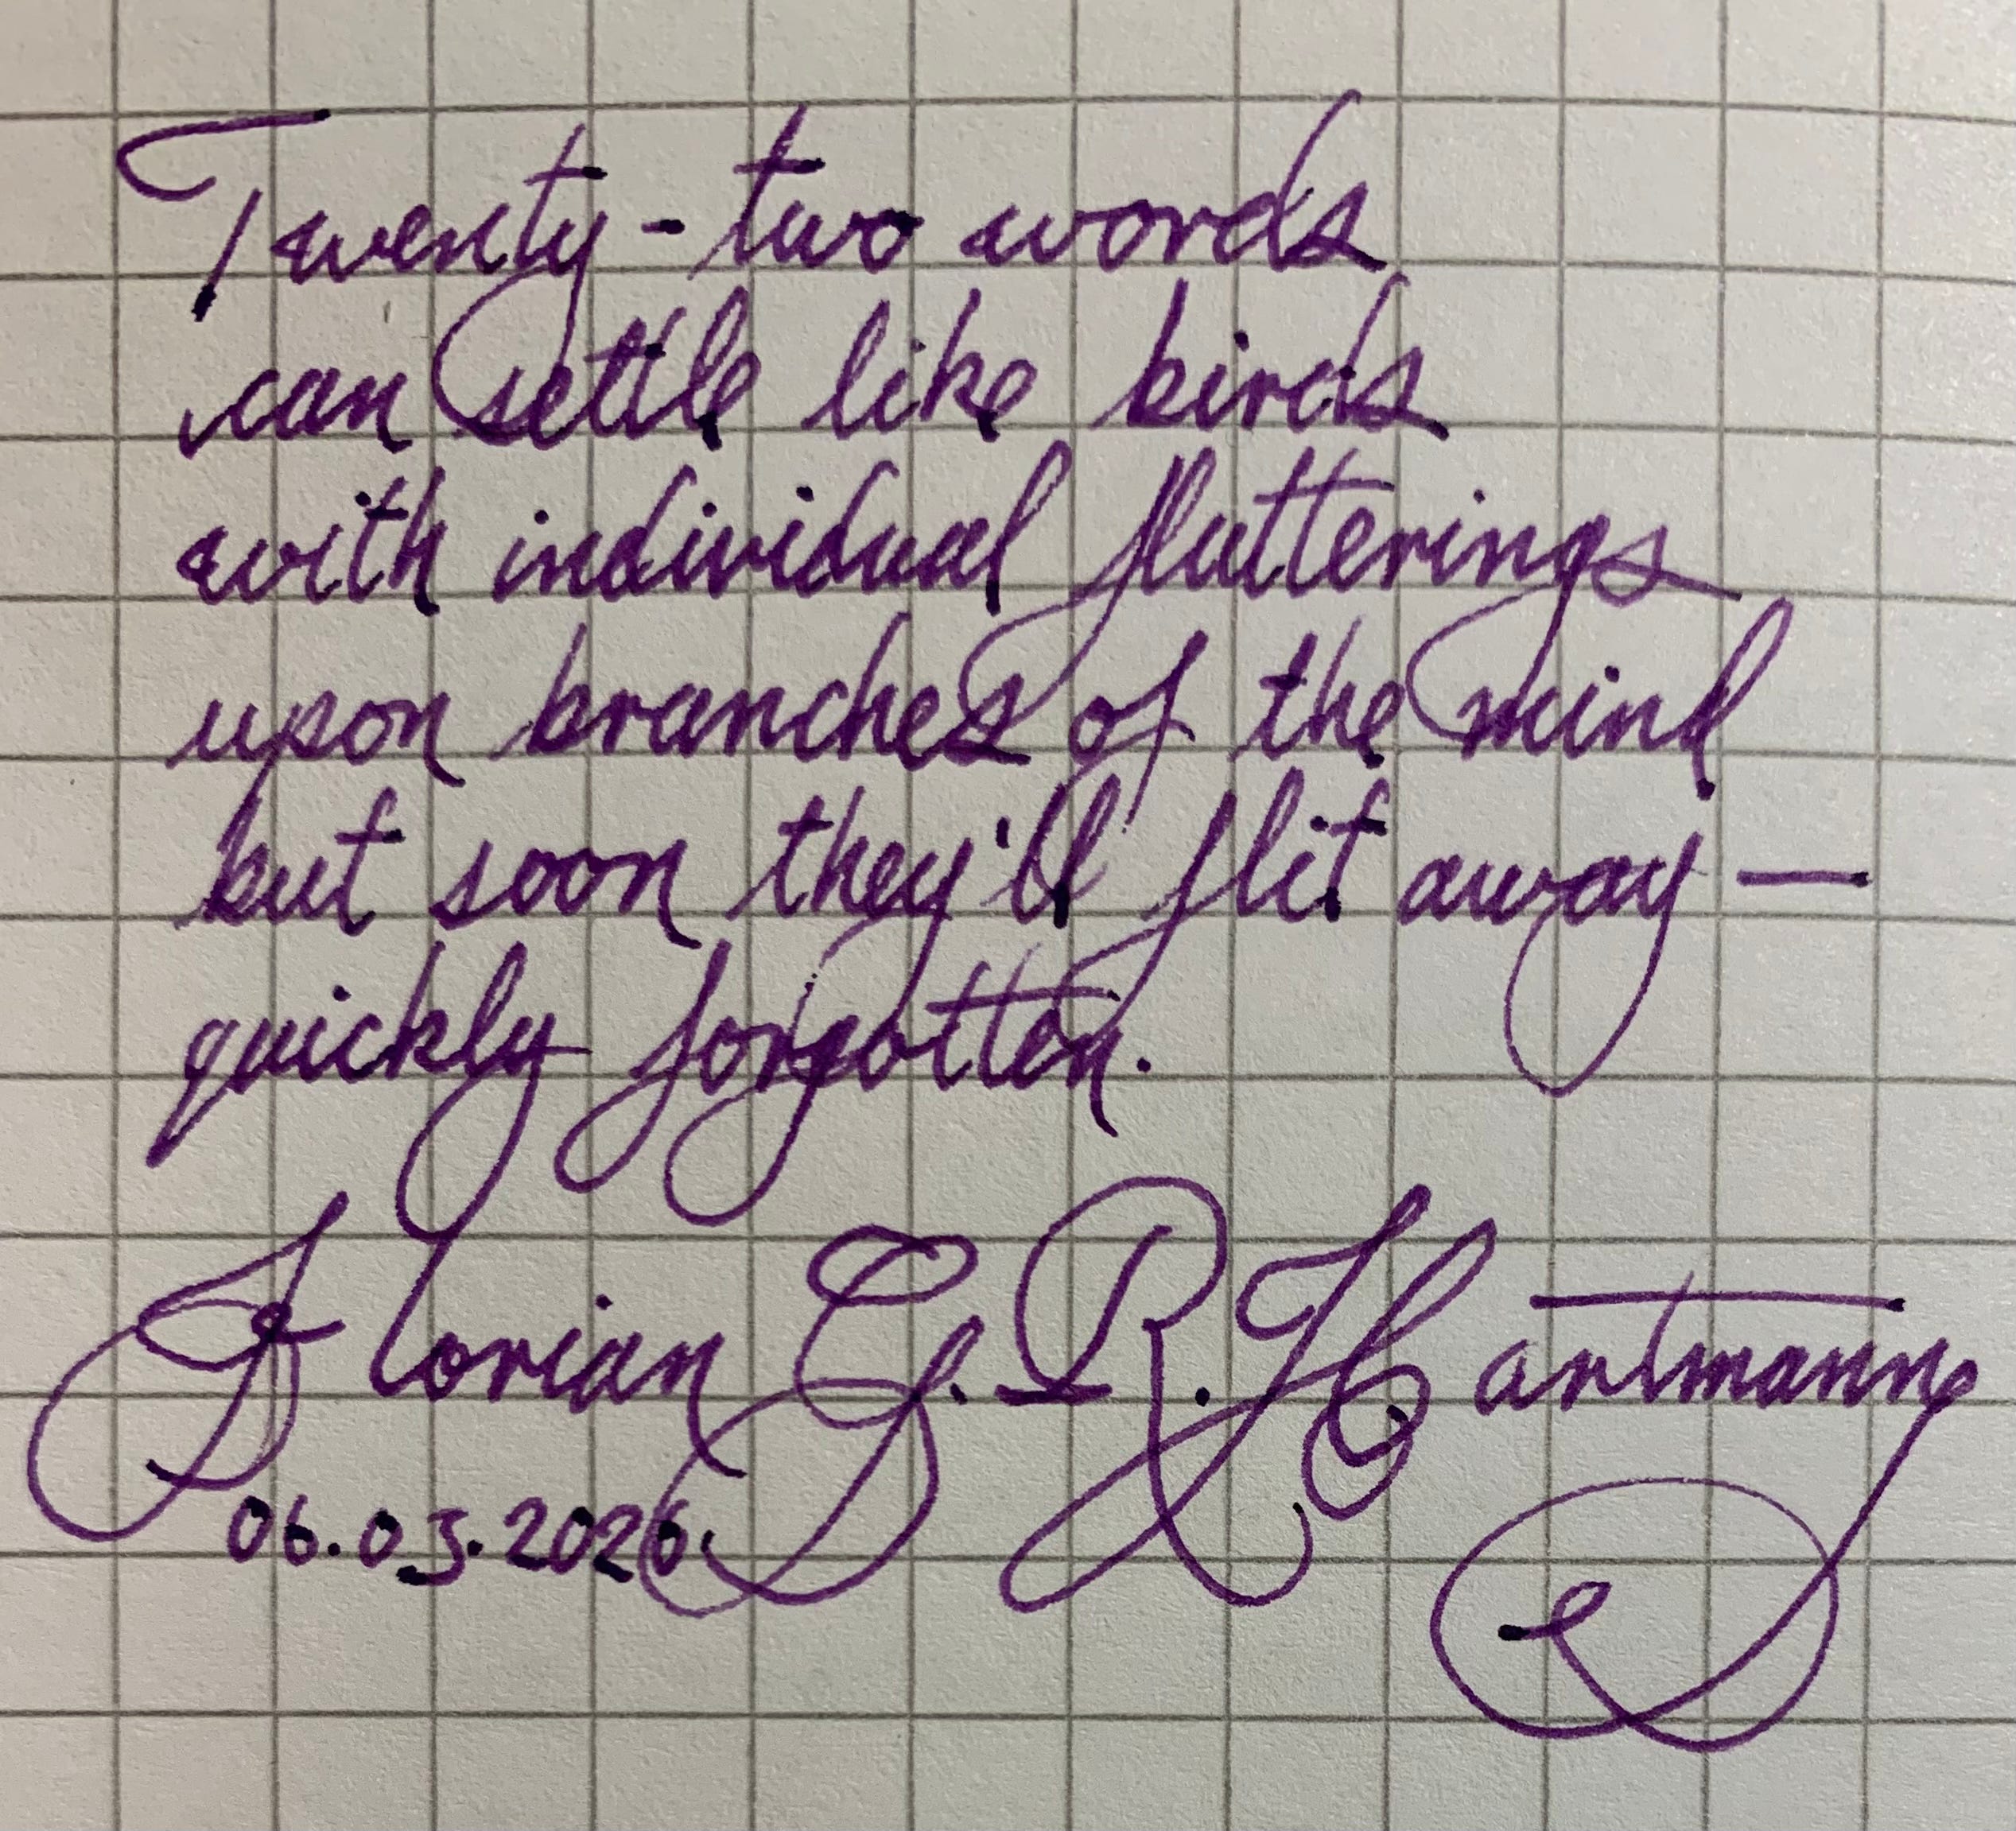 Twenty-two words
can settle like birds
with individual flutterings
upon branches of the mind
but soon they'll flit away —
quickly forgotten.
Florian G. R. Hartmann
06.03.2026.